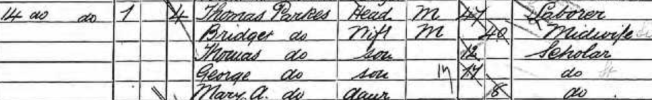 14 do do 1 4 Thomas Parkes Head M 47 Laborer
Bridget do Wift M 40 Midwife
Thomas do son 12 Scholar
George do son 17 do
Mary A. do daur 8 do